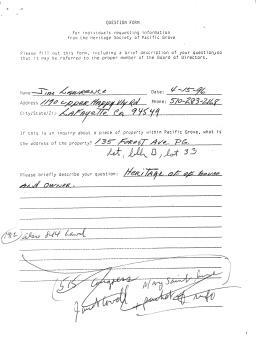 QUESTION FORM
for individuals requesting information
from the Heritage Society of Pacific Grove
Please fill out this form, including a brief description of your question so
that it may be referred to the proper member of the Board of Directors.
Name Jim Lawrence Date: 4-15-96
Address 1190 Upper Happy Vly Rd Phone: 510-283-2118
City/State/Zip LaFayette Ca 94549
If this is an inquiry about a piece of property within Pacific Grove, what is
the address of the property? 135 Forest Ave P.G.
lot, blk B, lot 33
Please briefly describe your question: Heritage of house
and owner.
515 Congress
Mary Saint
+ packet of info